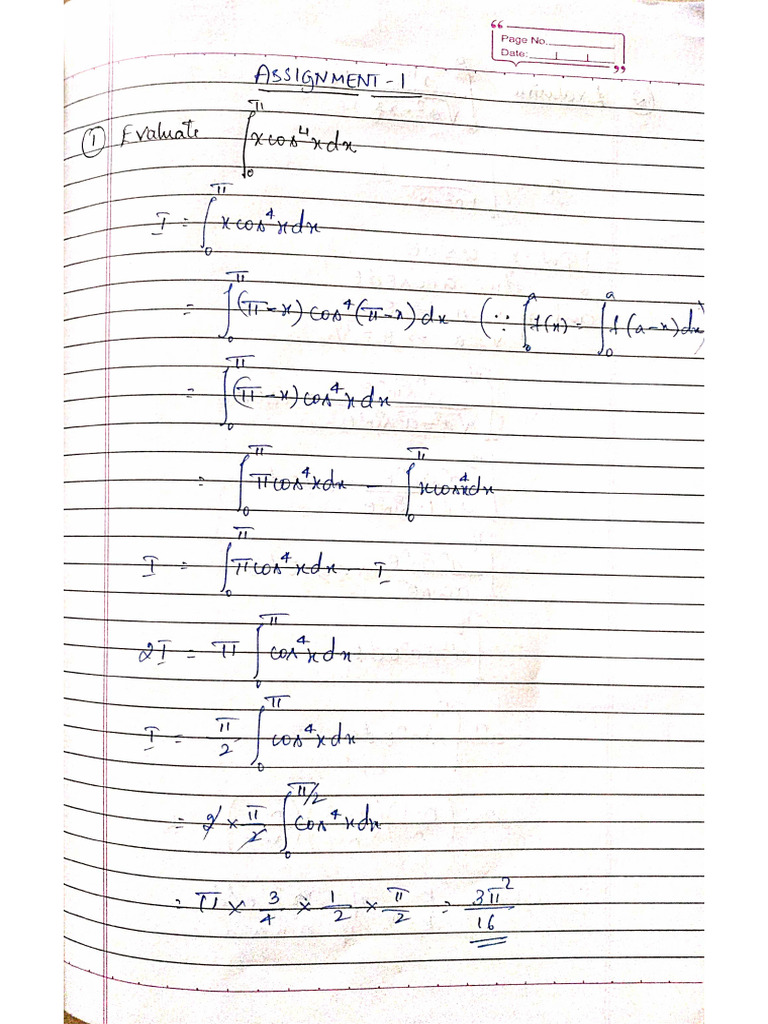 Page No.
Date:
ASSIGNMENT-1
① Evaluate ∫₀^π x cos⁴x dx
I = ∫₀^π x cos⁴x dx
= ∫₀^π (π-x) cos⁴(π-x) dx (∵ ∫₀^a f(x) = ∫₀^a f(a-x) dx)
= ∫₀^π (π-x) cos⁴x dx
= ∫₀^π π cos⁴x dx - ∫₀^π x cos⁴x dx
I = ∫₀^π π cos⁴x dx - I
2I = π ∫₀^π cos⁴x dx
I = π/2 ∫₀^π cos⁴x dx
= 2 × π/2 ∫₀^(π/2) cos⁴x dx
= π × 3/4 × 1/2 × π/2 = 3π²/16